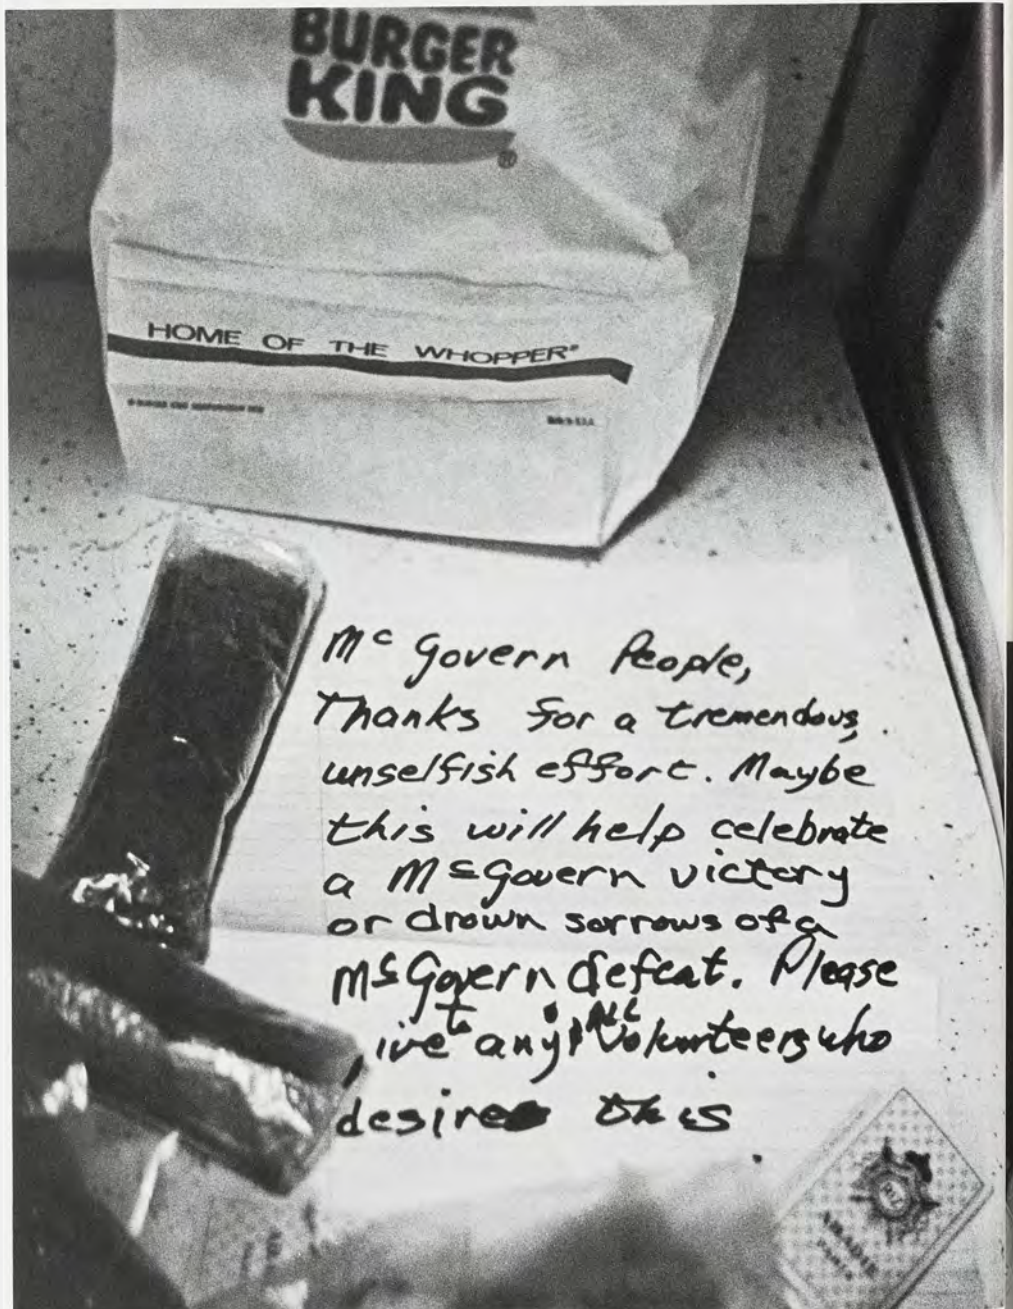 BURGER
KING
®
HOME OF THE WHOPPER®
Mc Govern People,
Thanks for a tremendous,
unselfish effort. Maybe
this will help celebrate
a McGovern victory
or drown sorrows of a
McGovern defeat. Please
ive to any ALL Volunteers who
desire this
ABADIE
PARIS